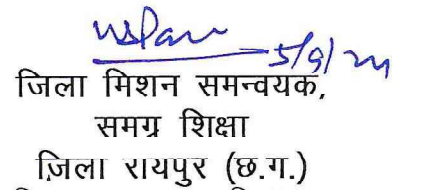 5/9/24
जिला मिशन समन्वयक,
समग्र शिक्षा
ज़िला रायपुर (छ.ग.)